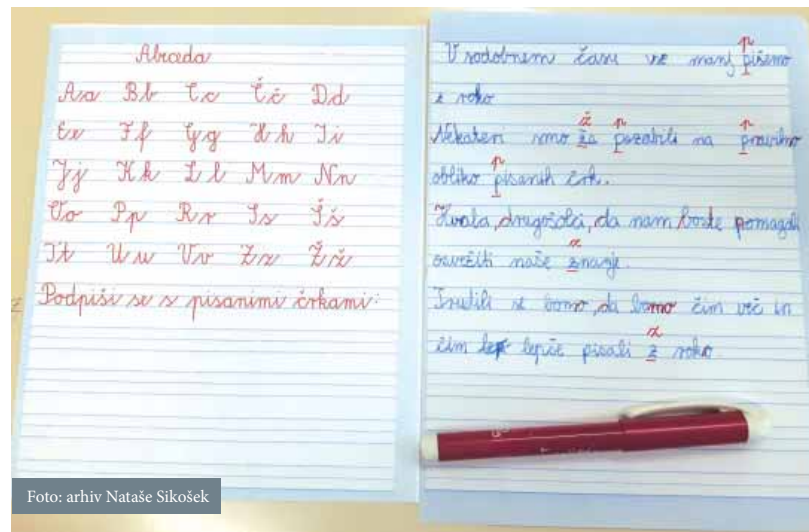 Abeceda
Aa Bb Cc Čč Dd
Ee Ff Gg Hh Ii
Jj Kk Ll Mm Nn
Oo Pp Rr Ss Šš
Tt Uu Vv Zz Žž
Podpiši se s pisanimi črkami:
V sodobnem času vse manj pišemo
z roko
Nekateri smo že pozabili na pravilno
obliko pisanih črk.
Hvala, drugošolci, da nam boste pomagali
osvežiti naše znanje.
Trudili se bomo, da bomo čim več in
čim lepše pisali z roko.
Foto: arhiv Nataše Sikošek